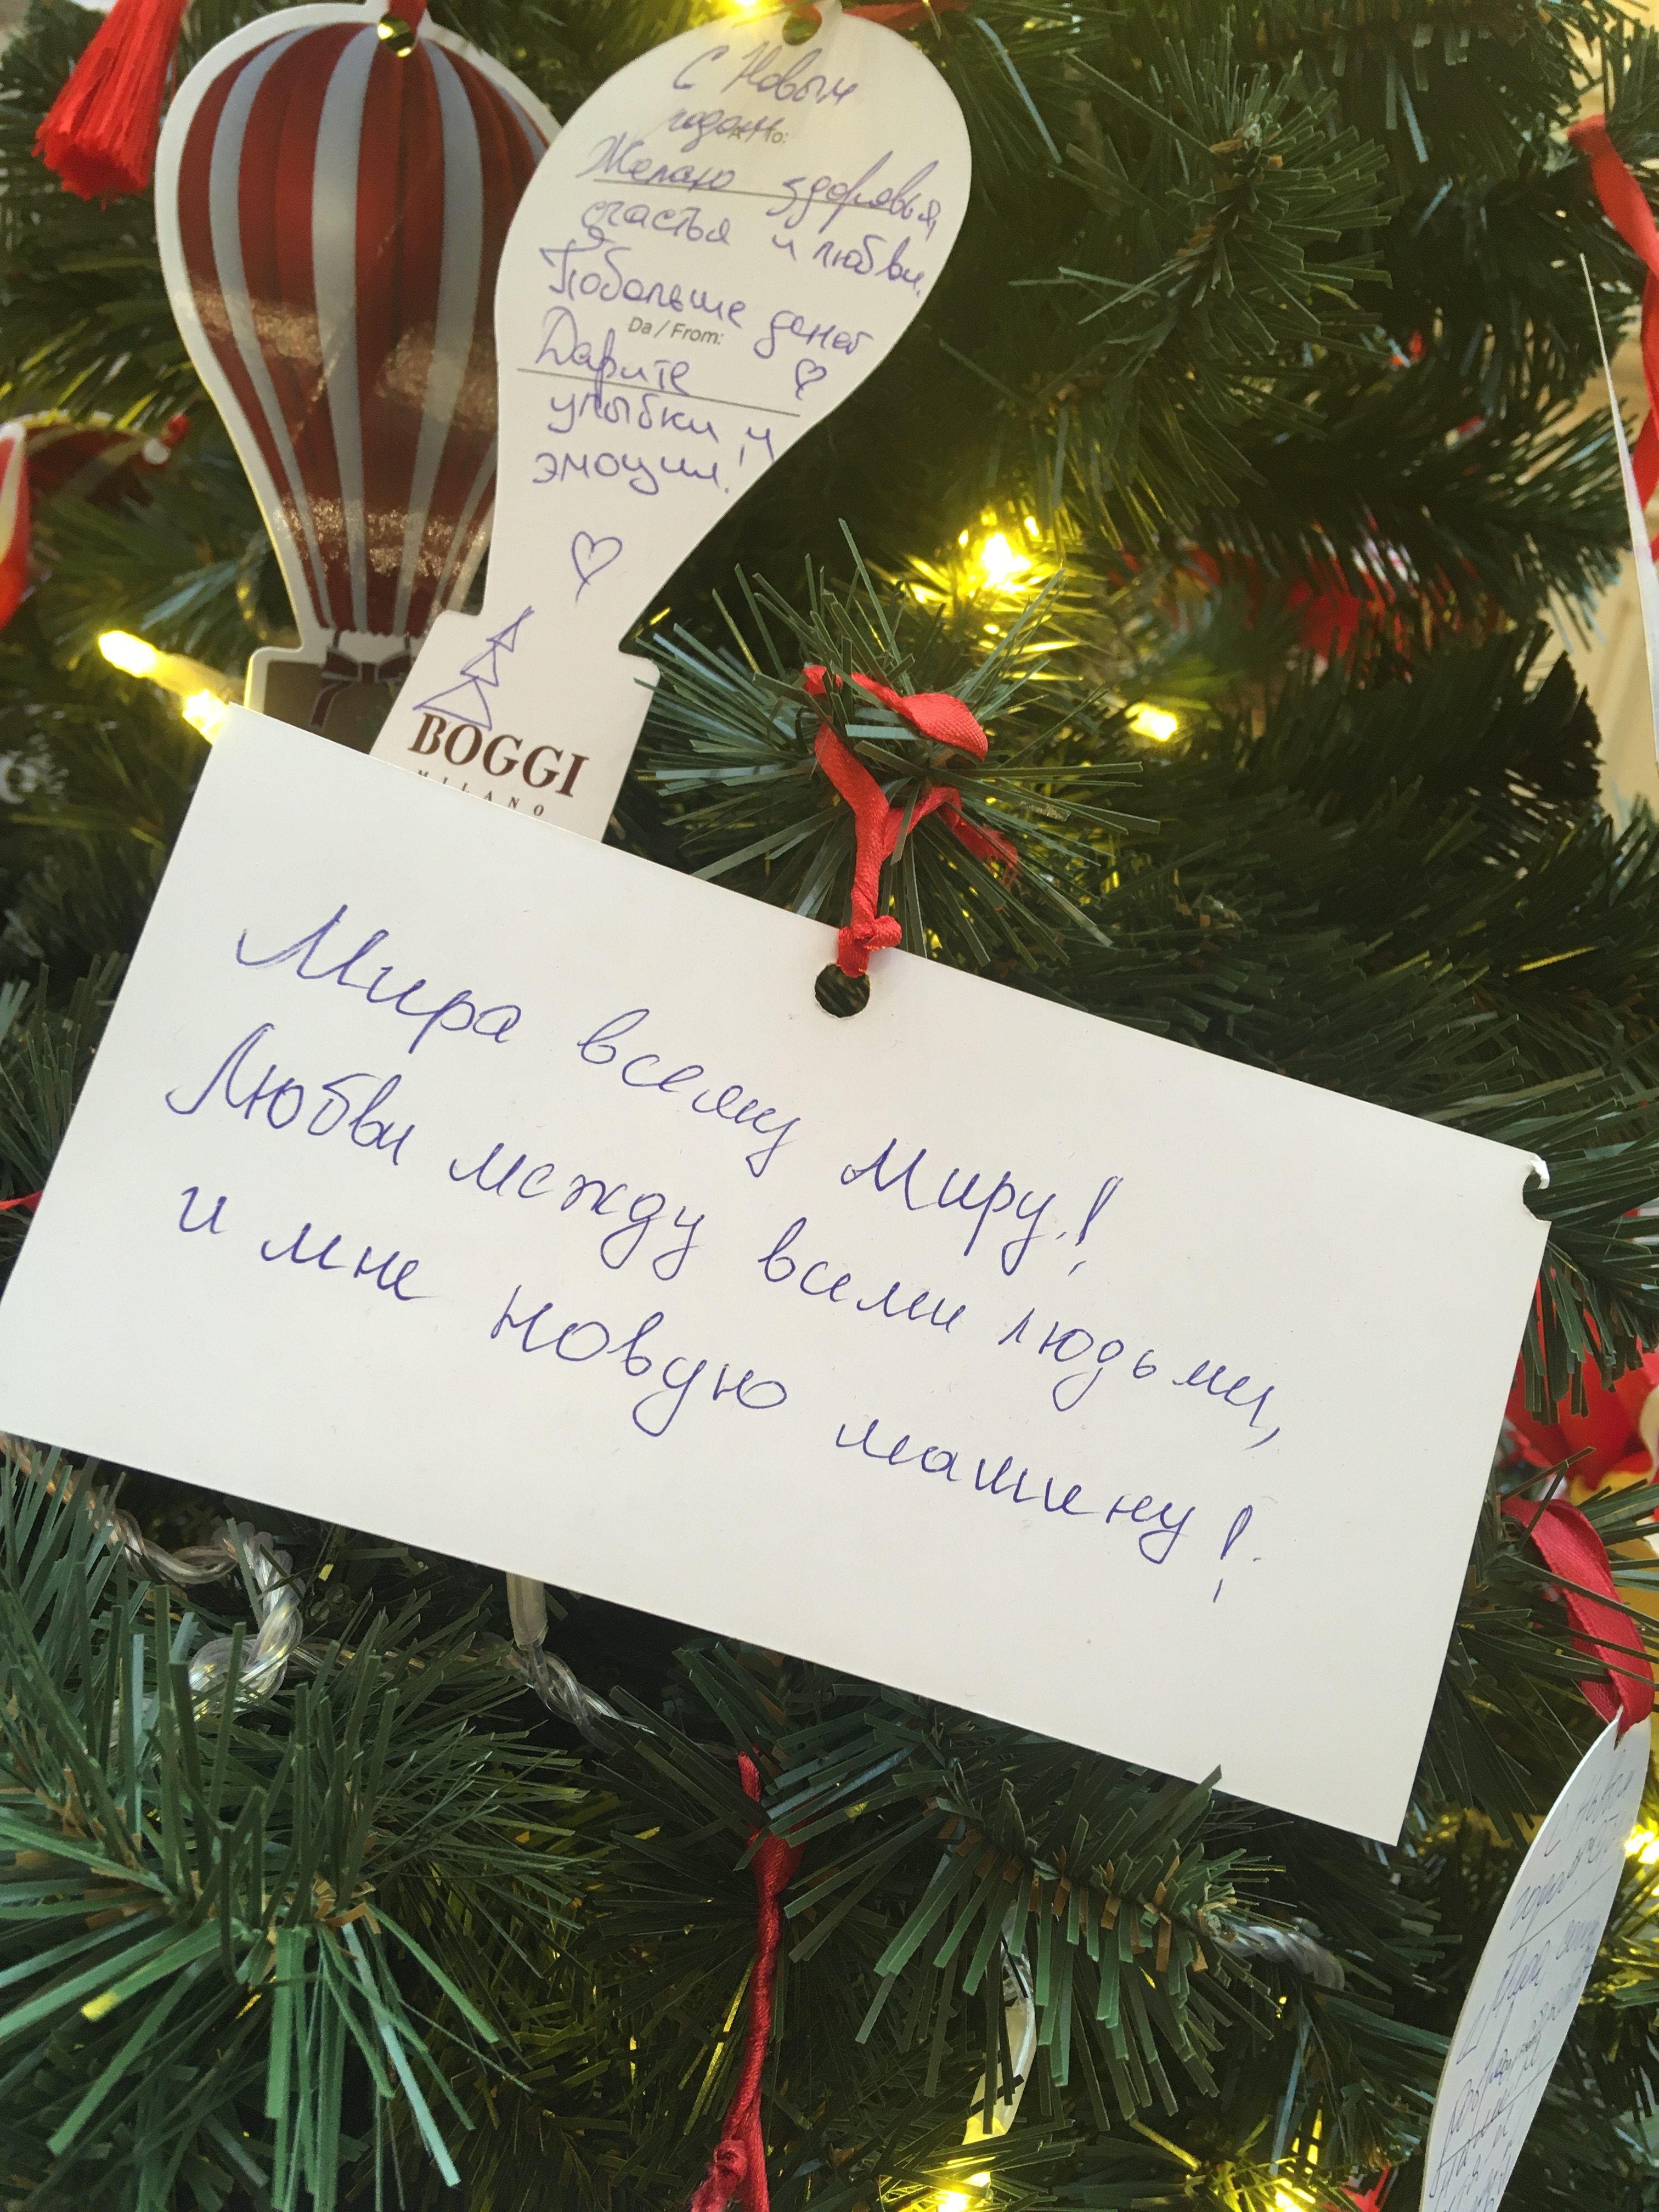 С Новым
годом
A / To:
Желаю здоровья,
счастья и любви.
Побольше денег
Da / From:
Дарите
улыбки и
эмоции!
BOGGI
MILANO
Мира всему Миру!
Любви между всеми людьми,
и мне новую машину!